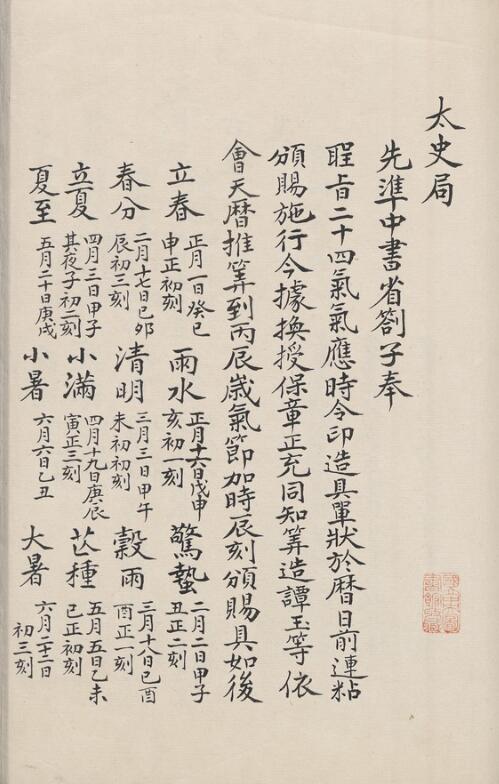 太史局
先準中書省劄子奉
聖旨二十四氣氣應時令印造具單狀於曆日前連粘
頒賜施行今據換授保章正充同知筭造譚玉等依
會天曆推筭到丙辰歲氣節加時辰刻頒賜具如後
立春 正月一日癸巳申正初刻 雨水 正月十六日戊申亥初一刻 驚蟄 二月二日甲子丑正二刻
春分 二月十七日己卯辰初三刻 清明 三月三日甲午未初初刻 穀雨 三月十八日己酉酉正一刻
立夏 四月三日甲子其夜子初二刻 小滿 四月十九日庚辰寅正三刻 芒種 五月五日乙未巳正初刻
夏至 五月二十日庚戌 小暑 六月六日乙丑 大暑 六月二十二日初三刻